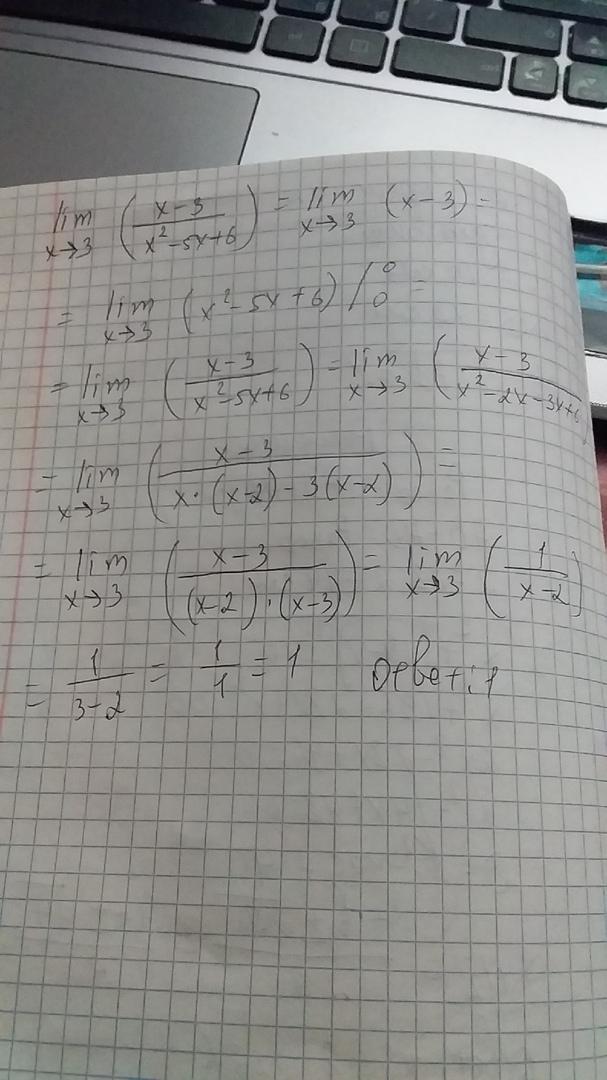 lim x→3 ( (x-3)/(x²-5x+6) ) = lim x→3 (x-3) =
= lim x→3 (x²-5x+6) / 0 0 =
= lim x→3 ( (x-3)/(x²-5x+6) ) = lim x→3 ( (x-3)/(x²-2x-3x+6) )
= lim x→3 ( (x-3)/(x·(x-2)-3(x-2)) ) =
= lim x→3 ( (x-3)/((x-2)·(x-3)) ) = lim x→3 ( 1/(x-2) )
= 1/(3-2) = 1/1 = 1 Ответ: 1